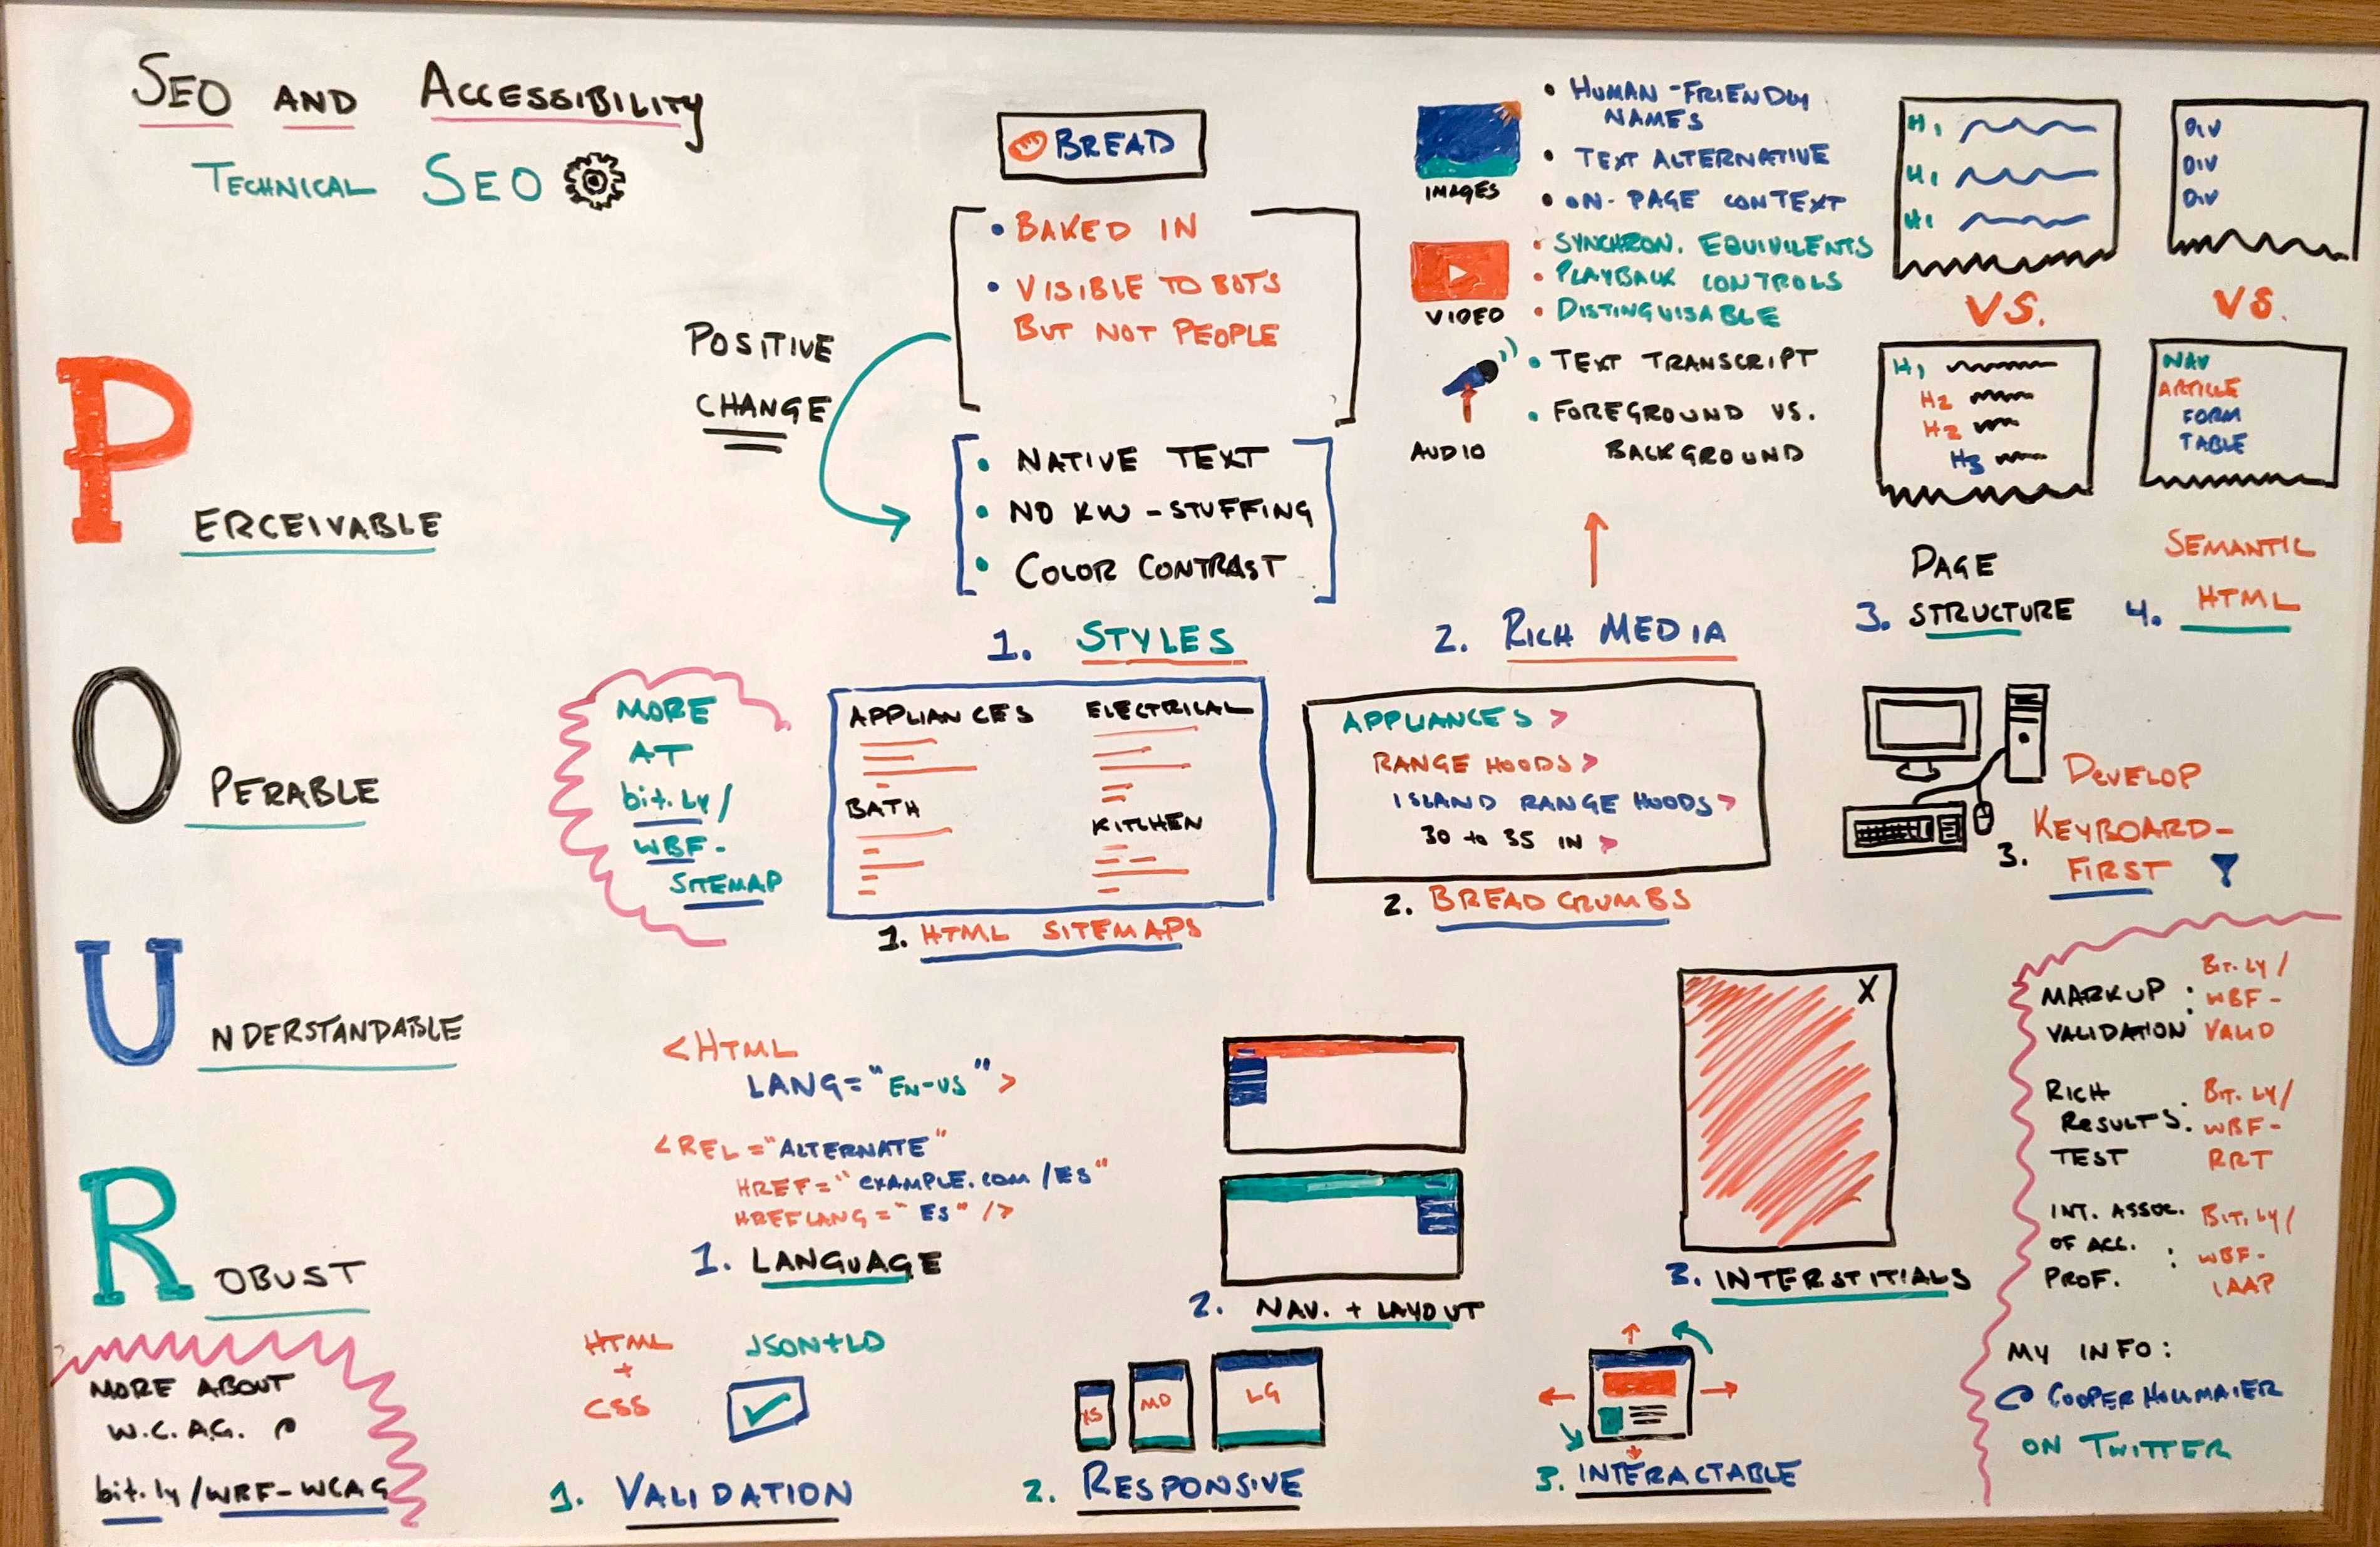 SEO AND ACCESSIBILITY
TECHNICAL SEO
PERCEIVABLE
POSITIVE
CHANGE
BREAD
• BAKED IN
• VISIBLE TO BOTS
BUT NOT PEOPLE
• NATIVE TEXT
• NO KW-STUFFING
• COLOR CONTRAST
1. STYLES
IMAGES
• HUMAN-FRIENDLY
NAMES
• TEXT ALTERNATIVE
• ON-PAGE CONTEXT
VIDEO
• SYNCHRON. EQUIVILENTS
• PLAYBACK CONTROLS
• DISTINGUISABLE
AUDIO
• TEXT TRANSCRIPT
• FOREGROUND VS.
BACKGROUND
2. RICH MEDIA
H1
H1
H1
VS.
H1
H2
H2
H3
3. PAGE
STRUCTURE
DIV
DIV
DIV
VS.
NAV
ARTICLE
FORM
TABLE
4. SEMANTIC
HTML
OPERABLE
MORE
AT
bit.ly/
WBF-
SITEMAP
APPLIANCES
ELECTRICAL
BATH
KITCHEN
1. HTML SITEMAPS
APPLIANCES >
RANGE HOODS >
ISLAND RANGE HOODS >
30 to 35 IN >
2. BREADCRUMBS
3. DEVELOP
KEYBOARD-
FIRST
UNDERSTANDABLE
<HTML
LANG="EN-US">
<REL="ALTERNATE"
HREF="EXAMPLE.COM/ES"
HREFLANG="ES" />
1. LANGUAGE
2. NAV. + LAYOUT
X
3. INTERSTITIALS
ROBUST
HTML
+
CSS
JSON+LD
1. VALIDATION
XS
MD
LG
2. RESPONSIVE
3. INTERACTABLE
MORE ABOUT
W.C.A.G. @
bit.ly/WBF-WCAG
MARKUP : BIT.LY/
VALIDATION WBF-
VALID
RICH : BIT.LY/
RESULTS WBF-
TEST RRT
INT. ASSOC. BIT.LY/
OF ACC. : WBF-
PROF. IAAP
MY INFO:
@ COOPERHOLLMAIER
ON TWITTER